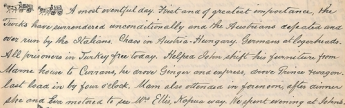 A most eventful day. First and of greatest importance, the
Turks have surrendered unconditionally and the Austrians defeated and
over run by the Italians. Chaos in Austria-Hungary. Germans at loggerheads.
All prisoners in Turkey free today. Helped John shift his furniture from
house to Currans, he drove Ginger and express, drove France waggon.
last load in by four o'clock. Mum also attended in forenoon, after dinner
she and Eva motored to see Mrs Ellis, Kopua way. We spent evening at Johns